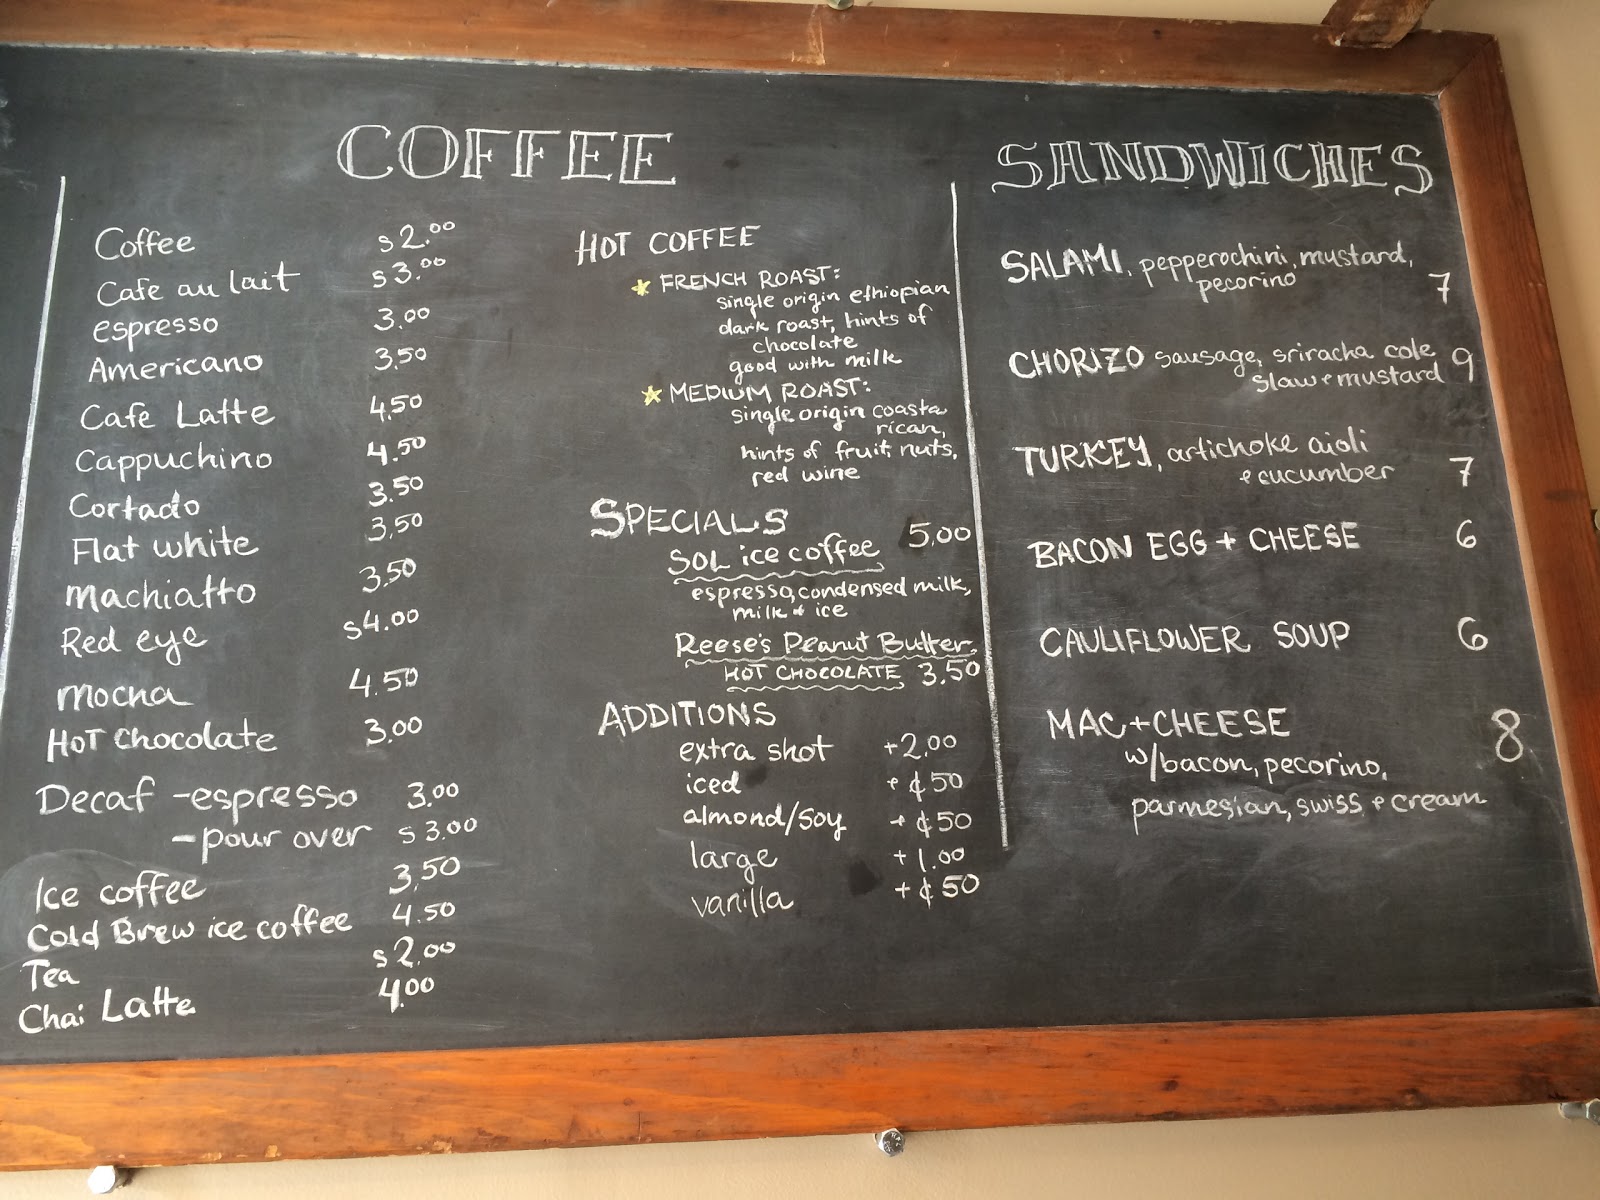 COFFEE
Coffee $2.00
Cafe au lait $3.00
espresso 3.00
Americano 3.50
Cafe Latte 4.50
Cappuchino 4.50
Cortado 3.50
Flat white 3.50
Machiatto 3.50
Red eye $4.00
Mocha 4.50
HOT Chocolate 3.00
Decaf -espresso 3.00
-pour over $3.00
Ice coffee 3.50
Cold Brew ice coffee 4.50
Tea $2.00
Chai Latte 4.00
HOT COFFEE
★ FRENCH ROAST:
single origin ethiopian
dark roast, hints of
chocolate
good with milk
★ MEDIUM ROAST:
single origin coasta
rican,
hints of fruit, nuts,
red wine
SPECIALS
SOL ice coffee 5.00
espresso, condensed milk,
milk + ice
Reese's Peanut Butter
HOT CHOCOLATE 3.50
ADDITIONS
extra shot +2.00
iced + ¢50
almond/soy + ¢50
large +1.00
vanilla + ¢50
SANDWICHES
SALAMI, pepperochini, mustard,
pecorino 7
CHORIZO sausage, sriracha cole 9
slaw + mustard
TURKEY, artichoke aioli
+ cucumber 7
BACON EGG + CHEESE 6
CAULIFLOWER SOUP 6
MAC+CHEESE 8
w/bacon, pecorino,
parmesian, swiss + cream